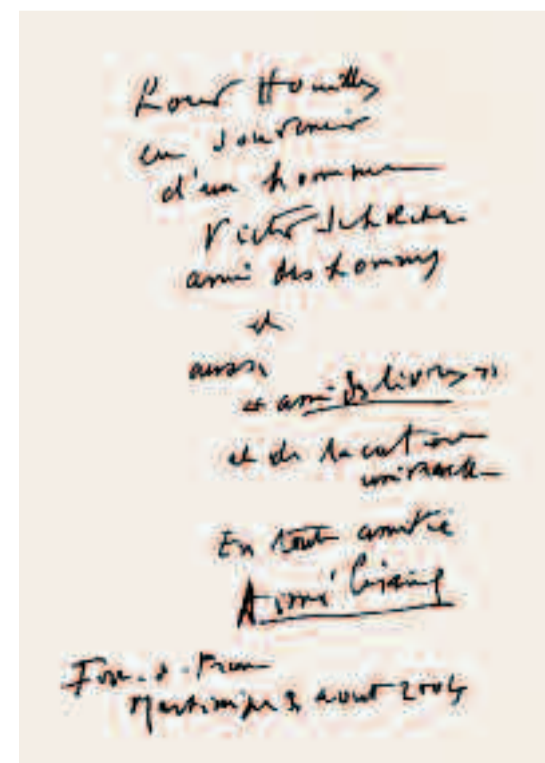 Pour Houilles
en souvenir
d'un homme
Victor Schœlcher
ami des hommes
et
aussi
« ami des livres »
et de la culture
universelle
En toute amitié
Aimé Césaire
Fort-de-France
Martinique 3 août 2004